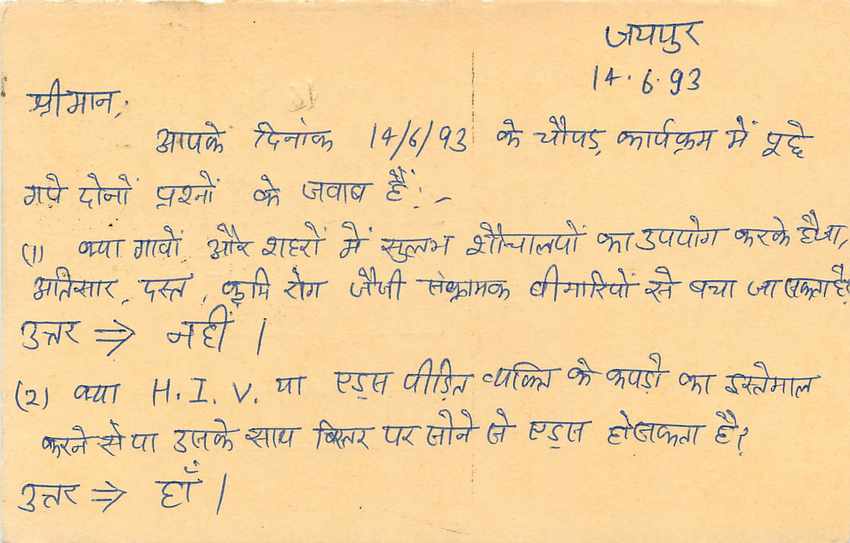 जयपुर
14.6.93
श्रीमान,
आपके दिनांक 14/6/93 के चौपड़ कार्यक्रम में पूछे
गये दोनों प्रश्नों के जवाब हैं:-
(1) क्या गावों और शहरों में सुलभ शौचालयों का उपयोग करके हैजा,
अतिसार, दस्त, कृमि रोग जैसी संक्रामक बीमारियों से बचा जा सकता है?
उत्तर ⇒ नहीं।
(2) क्या H.I.V. या एड्स पीड़ित व्यक्ति के कपड़ो का इस्तेमाल
करने से या उसके साथ बिस्तर पर सोने से एड्स हो सकता है?
उत्तर ⇒ हाँ।